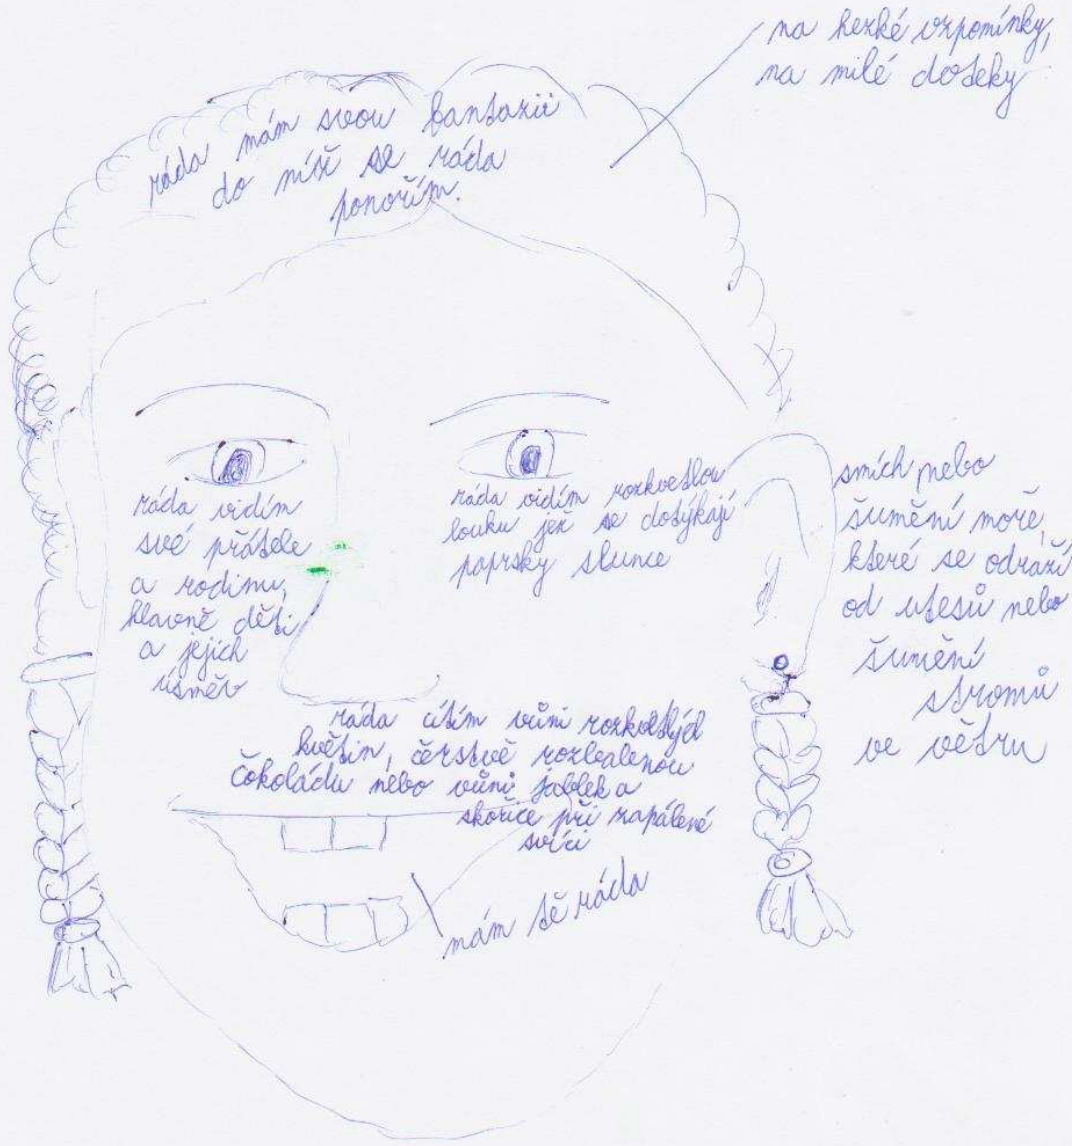 na hezké vzpomínky,
na milé doteky
ráda mám svou fantazii
do níž se ráda
ponořím.
ráda vidím
své přátele
a rodinu,
hlavně děti
a jejich
úsměv
ráda vidím rozkvetlou
louku jež se dotýkají
paprsky slunce
smích nebo
šumění moře,
které se odráží
od útesů nebo
šumění
stromů
ve větru
ráda cítím vůni rozkvetlých
květin, čerstvě rozbalenou
čokoládu nebo vůni jablek a
skořice při zapálené
svíci
mám tě ráda